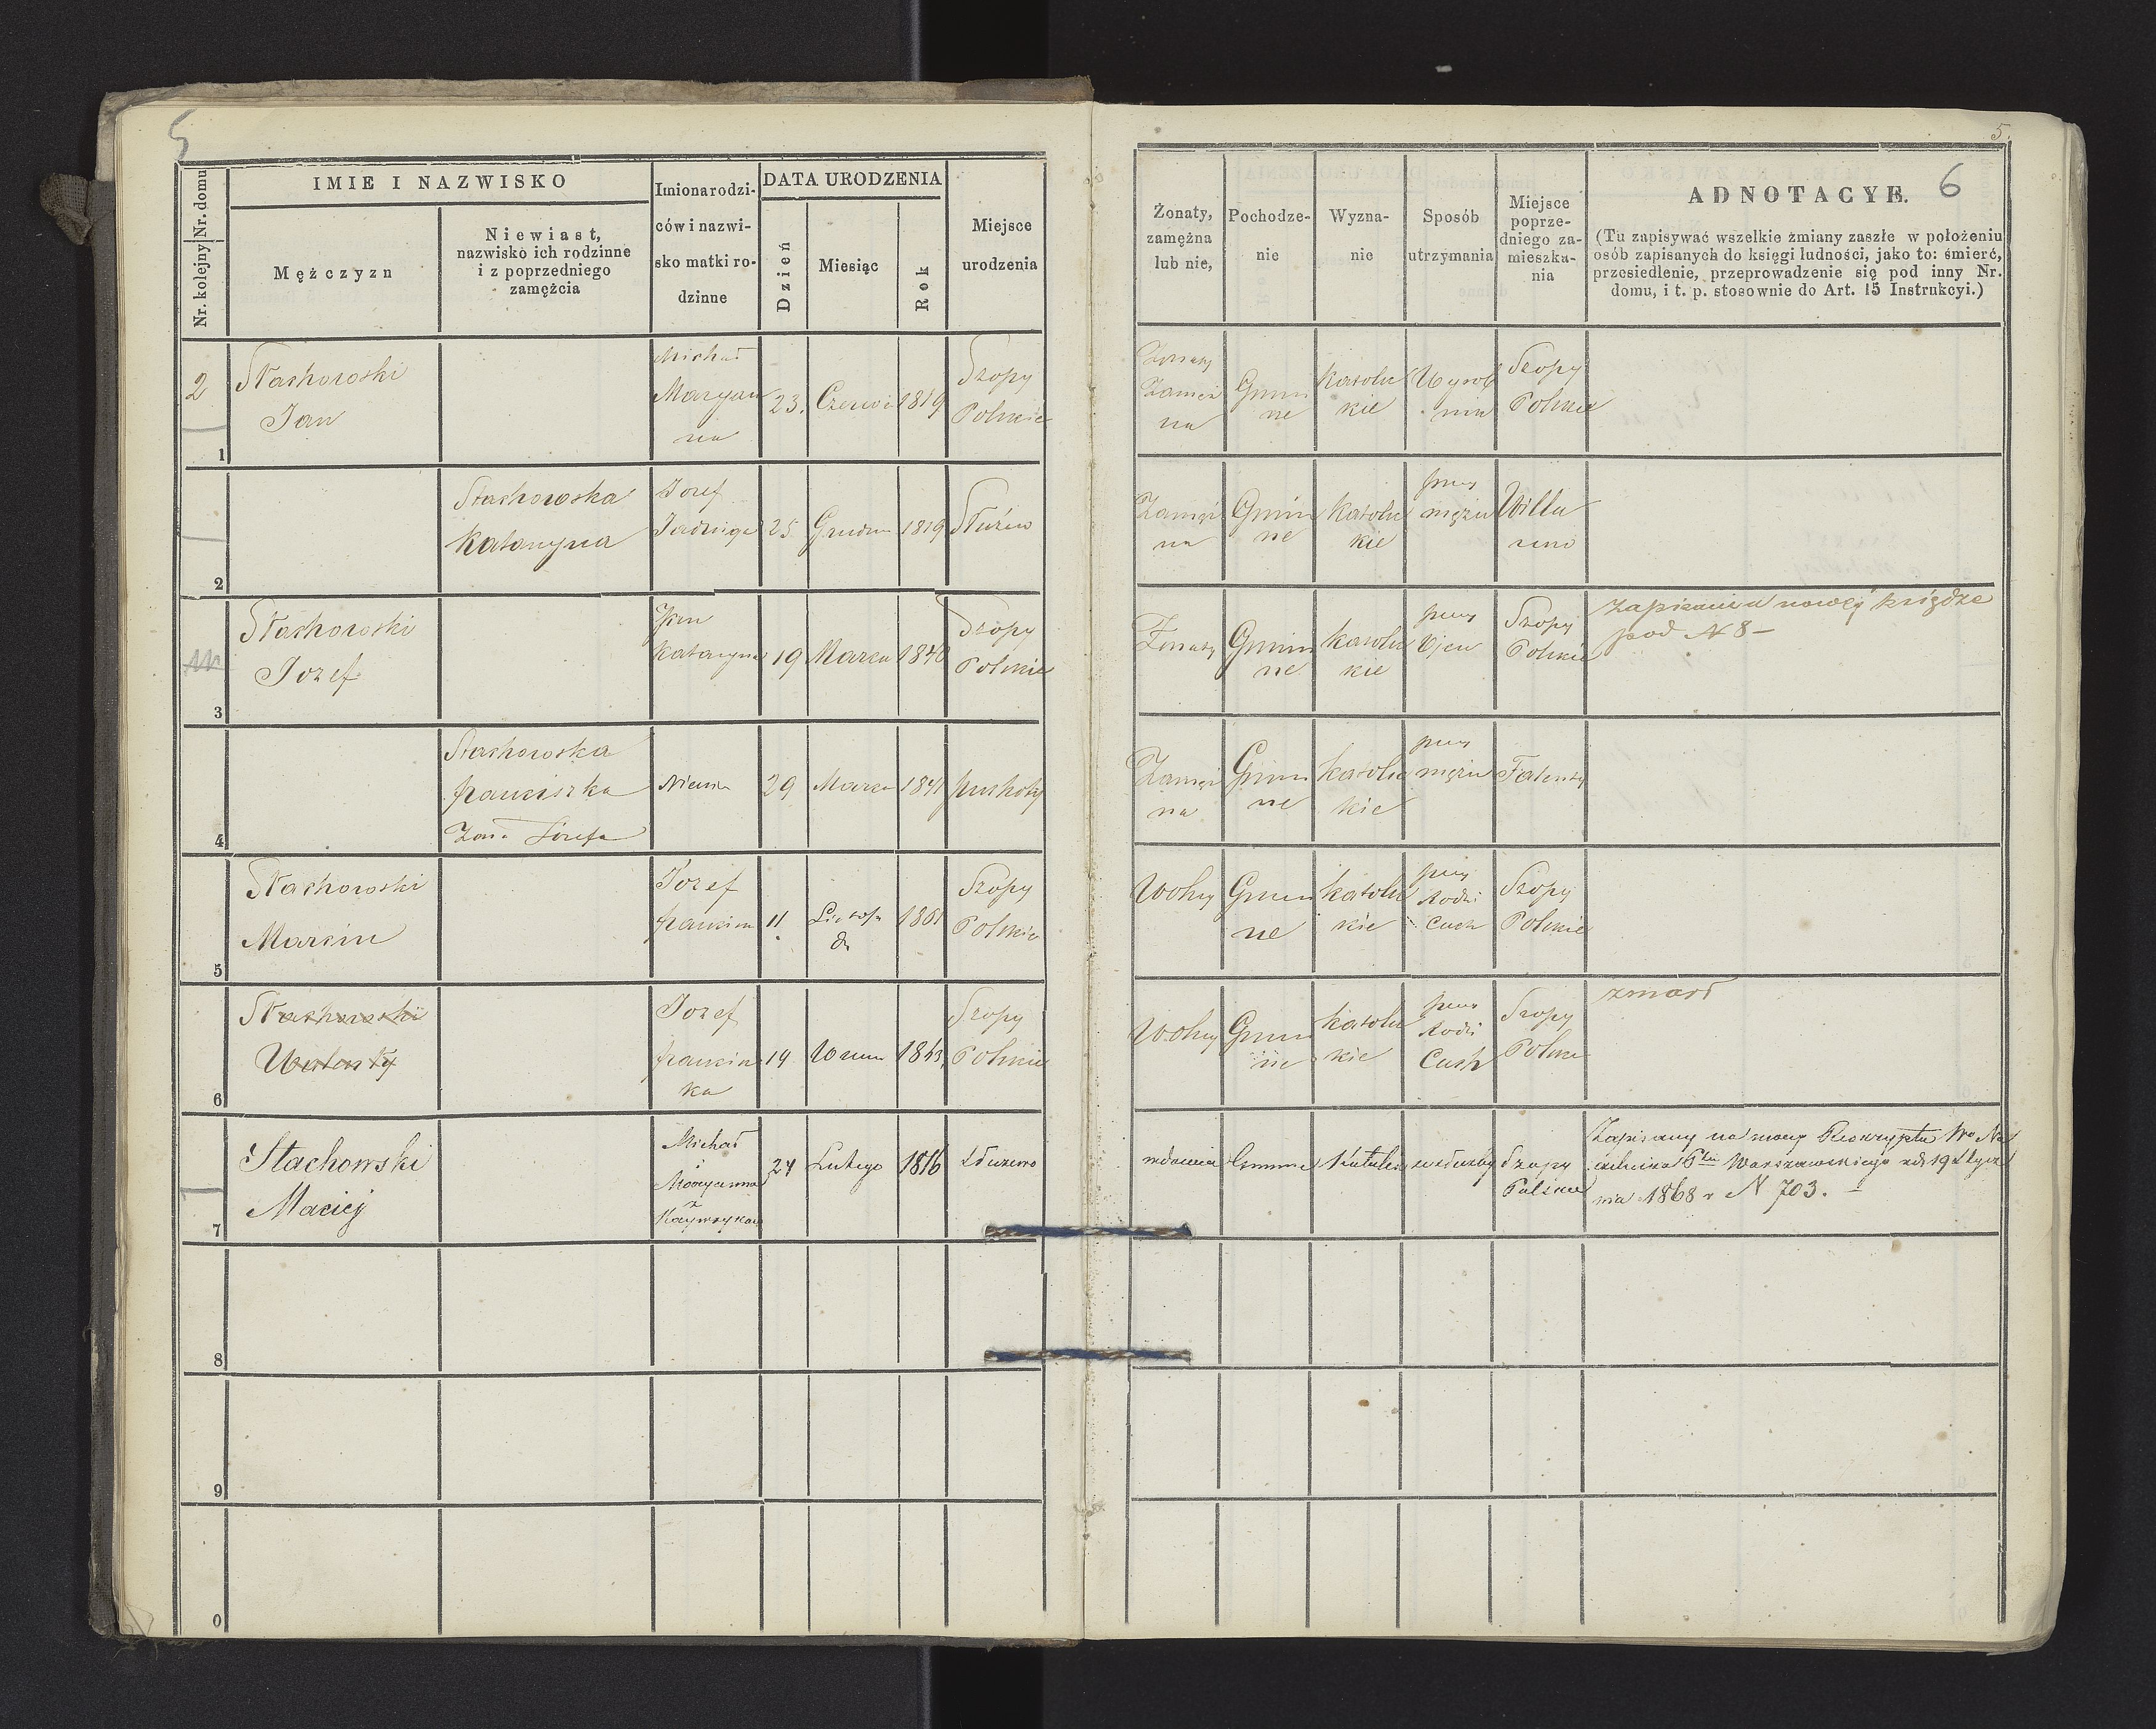 5
Nr. kolejny Nr. domu
IMIE I NAZWISKO
Mężczyzn
Niewiast,
nazwisko ich rodzinne
i z poprzedniego
zamężcia
Imiona rodzi-
ców i nazwi-
sko matki ro-
dzinne
DATA URODZENIA
Dzień
Miesiąc
Rok
Miejsce
urodzenia
2
1
Stachowski
Jan
Michał
Maryan
na
23.
1819
Szopy
Polskie
2
Stachowska
Katarzyna
Jozef
Jadwiga
25
Grudnia
1819
Służew
3
Stachowski
Jozef
Jan
Katarzyna
19
Marca
1840
Szopy
Polskie
4
Stachowska
Franciszka
Żona Józefa
29
Marca
1841
5
Stachowski
Marcin
Jozef
11
Listopa
da
1861
Szopy
Polskie
6
Stachowski
Walenty
Jozef
19
1863
Szopy
Polskie
7
Stachowski
Maciej
Michał
i
Maryanna
z
24
Lutego
1816
Służewo
8
9
0
5.
6
Żonaty,
zamężna
lub nie,
Pochodze-
nie
Wyzna-
nie
Sposób
utrzymania
Miejsce
poprze-
dniego za-
mieszka-
nia
ADNOTACYE.
(Tu zapisywać wszelkie zmiany zaszłe w położeniu
osób zapisanych do księgi ludności, jako to: śmierć,
przesiedlenie, przeprowadzenie się pod inny Nr.
domu, i t. p. stosownie do Art. 15 Instrukcyi.)
Żonaty
Zamęż
na
Gmin
ne
Katolic
kie
Wyrob
nik
Szopy
Polskie
Zamęż
na
Gmin
ne
Katolic
kie
przy
mężu
Willa
now
Żonaty
Gmin
ne
Katolic
kie
przy
Ojcu
Szopy
Polskie
Zapisanie w nowej książce
pod N 8 –
Zamęż
na
Gmin
ne
Katolic
kie
przy
mężu
Falenty
Wolny
Gmin
ne
Katolic
kie
przy
Rodzi
cach
Szopy
Polskie
Wolny
Gmin
ne
Katolic
kie
przy
Rodzi
Cach
Szopy
Polskie
zmarł
wdowiec
Gminne
Katolic
Szopy
Polskie
Zapisany na mocy Reskryptu Wo Na
czelnika Ptu Warszawskiego z d. 19 Stycz
nia 1868 r N 703. –